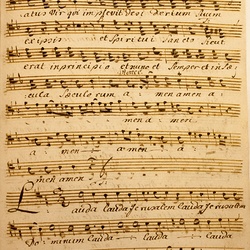 atus Vir qui implevit Desi derium suum
ex ipsis et Spiritui Sancto Sicut
erat in principio et nunc et Semper et in Sæ
cula Sæculorum a men amen a
men a men
a men a men a
men amen
Lauda Lauda Jerusalem Lauda Jerusalem
Dominum Lauda Lauda Lauda